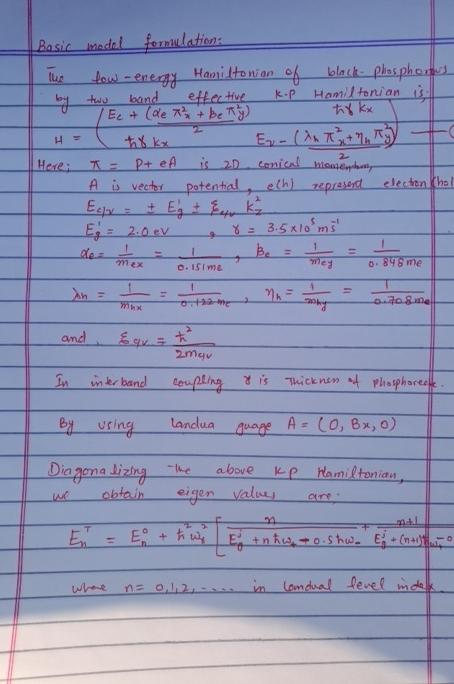 Basic model formulation:
The low-energy Hamiltonian of black-phosphorus
by two band effective k.p Hamiltonian is:
H = ( E_c + (α_e π_x^2 + β_e π_y^2)/2    ħγ k_x
ħγ k_x    E_v - (λ_h π_x^2 + η_h π_y^2)/2 ) — (
Here; π = P + eA is 2D conical momentum,
A is vector potential, e(h) represent electron (hol
E_c/v = ± E_g^j ± ξ_c/v k_z^2
E_g^j = 2.0 ev , γ = 3.5 x 10^5 m s^-1
α_e = 1/m_ex = 1/0.151me , β_e = 1/m_ey = 1/0.848me
λ_h = 1/m_hx = 1/0.122me , η_h = 1/m_hy = 1/0.708me
and, ξ_c/v = ħ^2/2m_c/v
In interband coupling γ is thicknen of phosphorece.
By using landua guage A = (0, Bx, 0)
Diagonalizing the above k.p Hamiltonian,
we obtain eigen values are:
E_n^T = E_n^0 + ħ^2 ω_s^2 [ n/(E_g^j + nħω_+ + 0.5ħω_-) + n+1/(E_g^j + (n+1)ħω_+ - 0
where n = 0,1,2, ..... in landual level index.